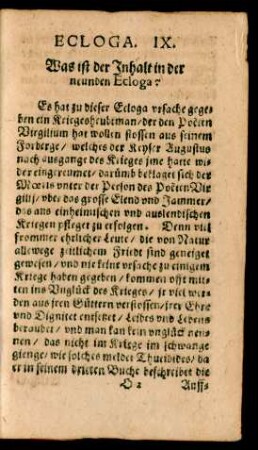 ECLOGA. IX.
Was ist der Inhalt in der
neunden Ecloga?
Es hat zu dieser Ecloga vrsache gege
ben ein Kriegesheubtman/der den Poëten
Virgilium hat wollen stossen aus seinem
Forberge/ welches der Keyser Augustus
nach ausgange des Krieges jme hatte wi
der eingereumet/ darümb beklaget sich der
Mœris vnter der Person des Poëten Vir
gilij/ vber das grosse Elend vnd Jammer/
das aus einheimischen vnd auslendischen
Kriegen pfleget zu erfolgen. Denn viel
frommer ehrlicher Leute/ die von Natur
allewege zeitlichem Friede sind geneiget
gewesen/ vnd nie keine vrsache zu einigem
Kriege haben gegeben/ kommen offt mit
ten ins Vnglück des Krieges/ jr viel wer
den aus jren Güttern verstossen/ jrer Ehre
vnd Dignitet entsetzet/ Leibes vnd Lebens
beraubet/ vnd man kan kein vnglück nen
nen/ das nicht im Kriege im schwange
gienge/ wie solches meldet Thucidides/ da
er in seinem dritten Buche beschreibet die
O 2 Auffs